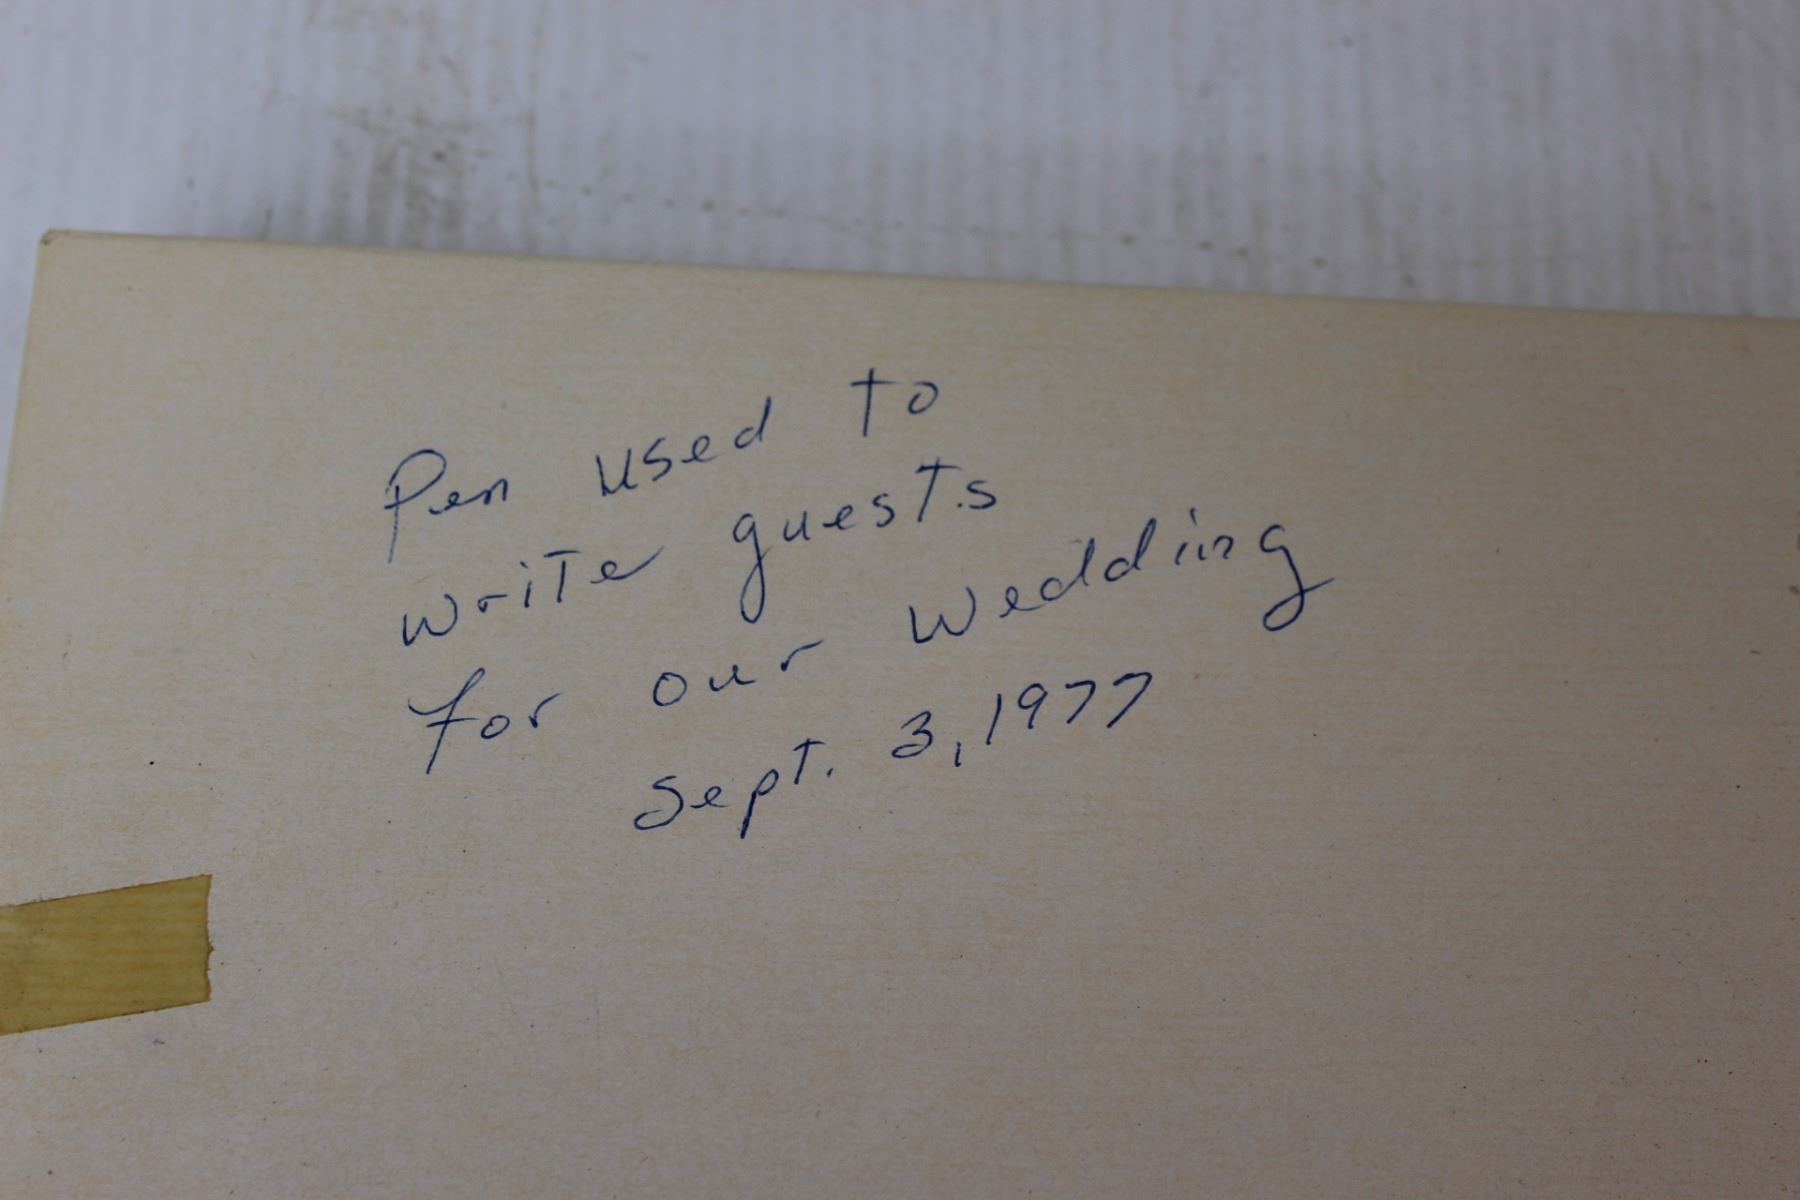 Pen used to
write guests
for our wedding
Sept. 3, 1977